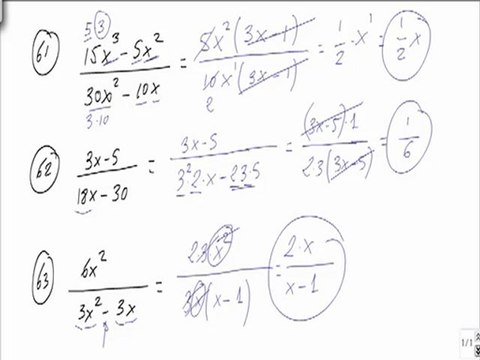 5 3
61) (15x³ - 5x²)/(30x² - 10x) = 5x²(3x-1)/10x¹(3x-1) = 1/2 · x¹ = 1/2 x
3·10 2
62) (3x-5)/(18x-30) = (3x-5)/(3²2·x-23·5) = (3x-5)·1/23(3x-5) = 1/6
63) 6x²/(3x² - 3x) = 23x²/3x(x-1) = 2·x/(x-1)
1/1